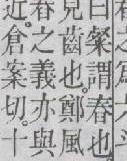 曰粲謂春也
見齒也鄭風
春之義亦與
近倉案切十